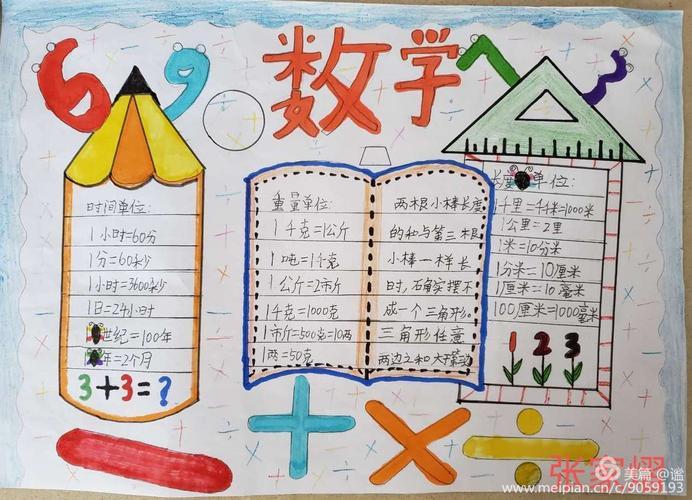 数学
时间单位:
1小时=60分
1分=60秒
1小时=3600秒
1日=24小时
世纪=100年
年=2个月
3+3=?
重量单位:
1千克=1公斤
1吨=1千克
1公斤=2市斤
1千克=1000克
1市斤=500克=10两
1两=50克
两根小棒长度
的和与第三根
小棒一样长
时,石角实摆不
成一个三角形。
三角形任意
两边之和大于第
长 单位:
1千里=千米=1000米
1公里=2里
1米=10分米
1分米=10厘米
1厘米=10毫米
100厘米=1000毫米
1 2 3
张
美篇 @谧
www.meipian.cn/c/9059193